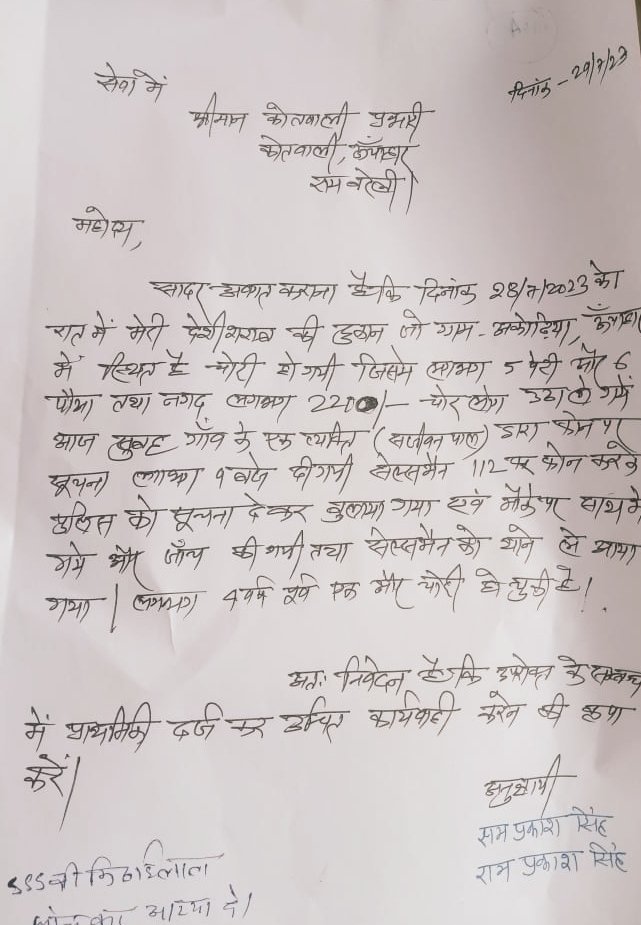 सेवा में
दिनांक - 29/7/23
श्रीमान कोतवाली प्रभारी
कोतवाली, ऊँचाहार
राय बरेली।
महोदय,
सादर अवगत कराना है कि दिनांक 28/7/2023 को
रात में मेरी देशी शराब की दुकान जो ग्राम - अकोढ़िया, ऊँचाहार
में स्थित है चोरी हो गयी जिसमे लगभग 5 पेटी और 6
पौवा तथा नगद लगभग 2200/- चोर लोग उठा ले गये
आज सुबह गाँव के एक व्यक्ति (सजीवन पाल) द्वारा फोन पर
सूचना लगभग 9 बजे दी गयी सेल्समैन 112 पर फोन करके
पुलिस को सूचना देकर बुलाया गया एवं मौके पर साथ में
गये और जाँच की गयी तथा सेल्समैन को थाने ले आया
गया। लगभग 4 वर्ष पूर्व एक और चोरी हो चुकी है।
अतः निवेदन है कि उपरोक्त के सम्बन्ध
में प्राथमिकी दर्ज कर उचित कार्यवाही करने की कृपा
करें।
राम प्रकाश सिंह
राम प्रकाश सिंह
SSS श्री मिठाईलाल
आख्या दे।